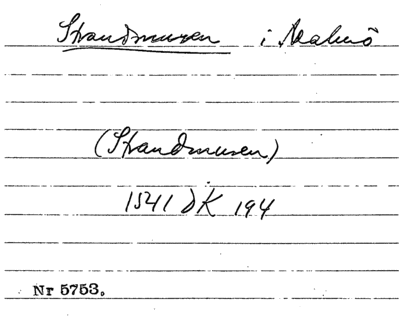 Strandmuren i Malmö
(Strandmuren)
1541 DK 194
Nr 5753.